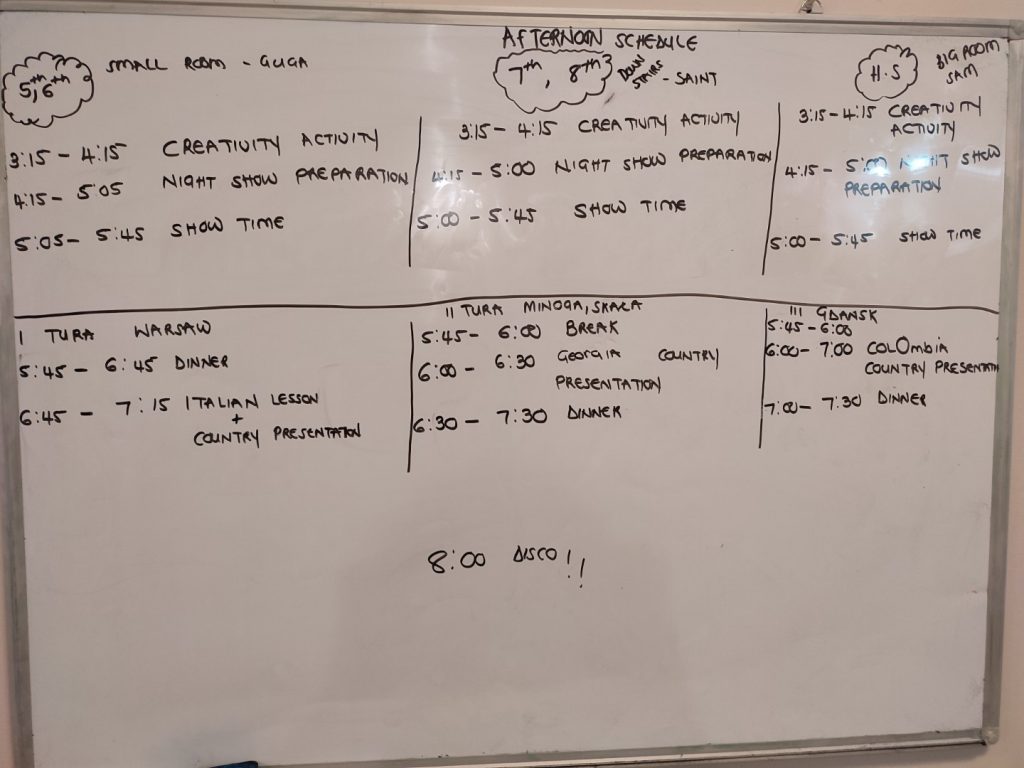 AFTERNOON SCHEDULE
5th, 6th SMALL ROOM - GUGA
3:15 - 4:15 CREATIVITY ACTIVITY
4:15 - 5:05 NIGHT SHOW PREPARATION
5:05 - 5:45 SHOW TIME
7th, 8th DOWN STAIRS - SAINT
3:15 - 4:15 CREATIVITY ACTIVITY
4:15 - 5:00 NIGHT SHOW PREPARATION
5:00 - 5:45 SHOW TIME
H.S BIG ROOM
SAM
3:15 - 4:15 CREATIVITY
ACTIVITY
4:15 - 5:00 NIGHT SHOW
PREPARATION
5:00 - 5:45 SHOW TIME
I TURA WARSAW
5:45 - 6:45 DINNER
6:45 - 7:15 ITALIAN LESSON
+
COUNTRY PRESENTATION
II TURA MINOGA, SKALA
5:45 - 6:00 BREAK
6:00 - 6:30 GEORGIA COUNTRY
PRESENTATION
6:30 - 7:30 DINNER
III GDANSK
5:45 - 6:00
6:00 - 7:00 COLOMBIA
COUNTRY PRESENTATN
7:00 - 7:30 DINNER
8:00 DISCO!!